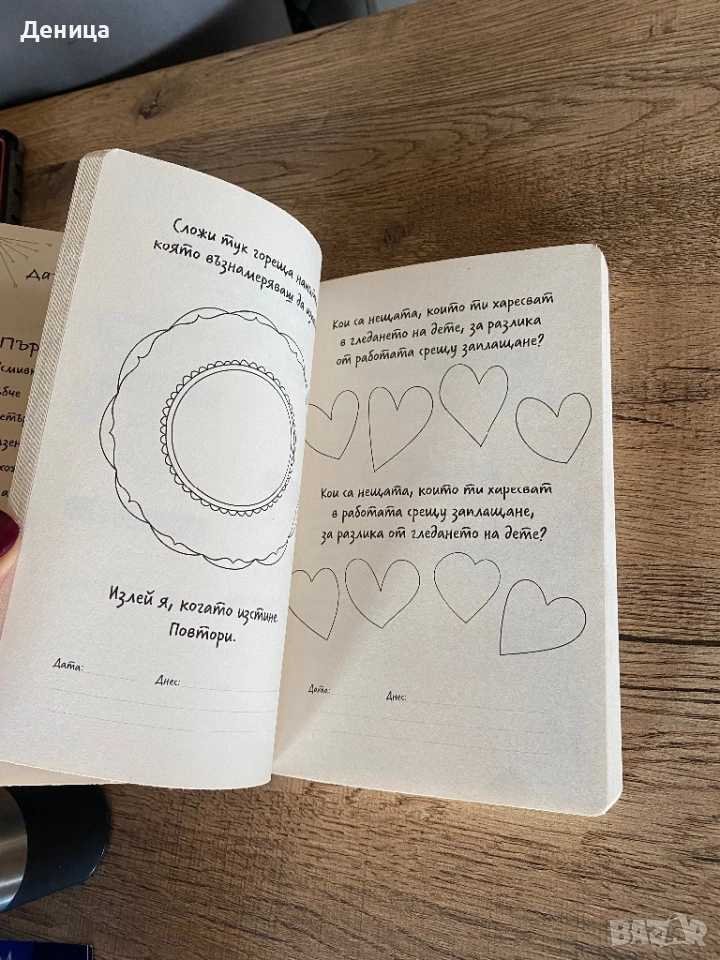 Деница
Сложи тук гореща
която възнамеряваш да
Излей я, когато изстине.
Повтори.
Дата:
Днес:
Кои са нещата, които ти харесват
в гледането на дете, за разлика
от работата срещу заплащане?
Кои са нещата, които ти харесват
в работата срещу заплащане,
за разлика от гледането на дете?
Дата:
Днес:
BAZAR